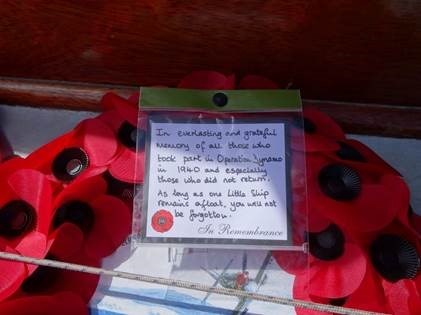 In everlasting and grateful
Memory of all those who
took part in Operation Dynamo
in 1940 and especially
those who did not return.
As long as one Little Ship
remains afloat, you will not
be forgotten.
In Remembrance